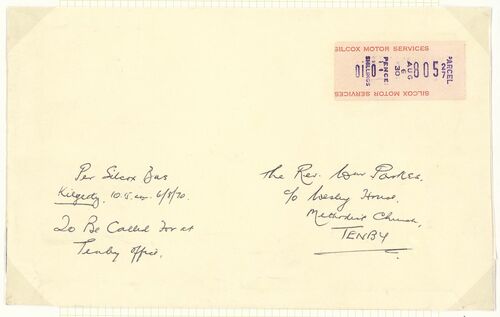 SILCOX MOTOR SERVICES
PARCEL
27
805
AUG
6
30
PENCE
SHILLINGS
SILCOX MOTOR SERVICES
Per Silcox Bus
Kilgetty, 10.15 am. 6/8/70.
To Be Called For at
Tenby Office.
The Rev. Parkes.
c/o Wesley House,
Methodist Church,
TENBY